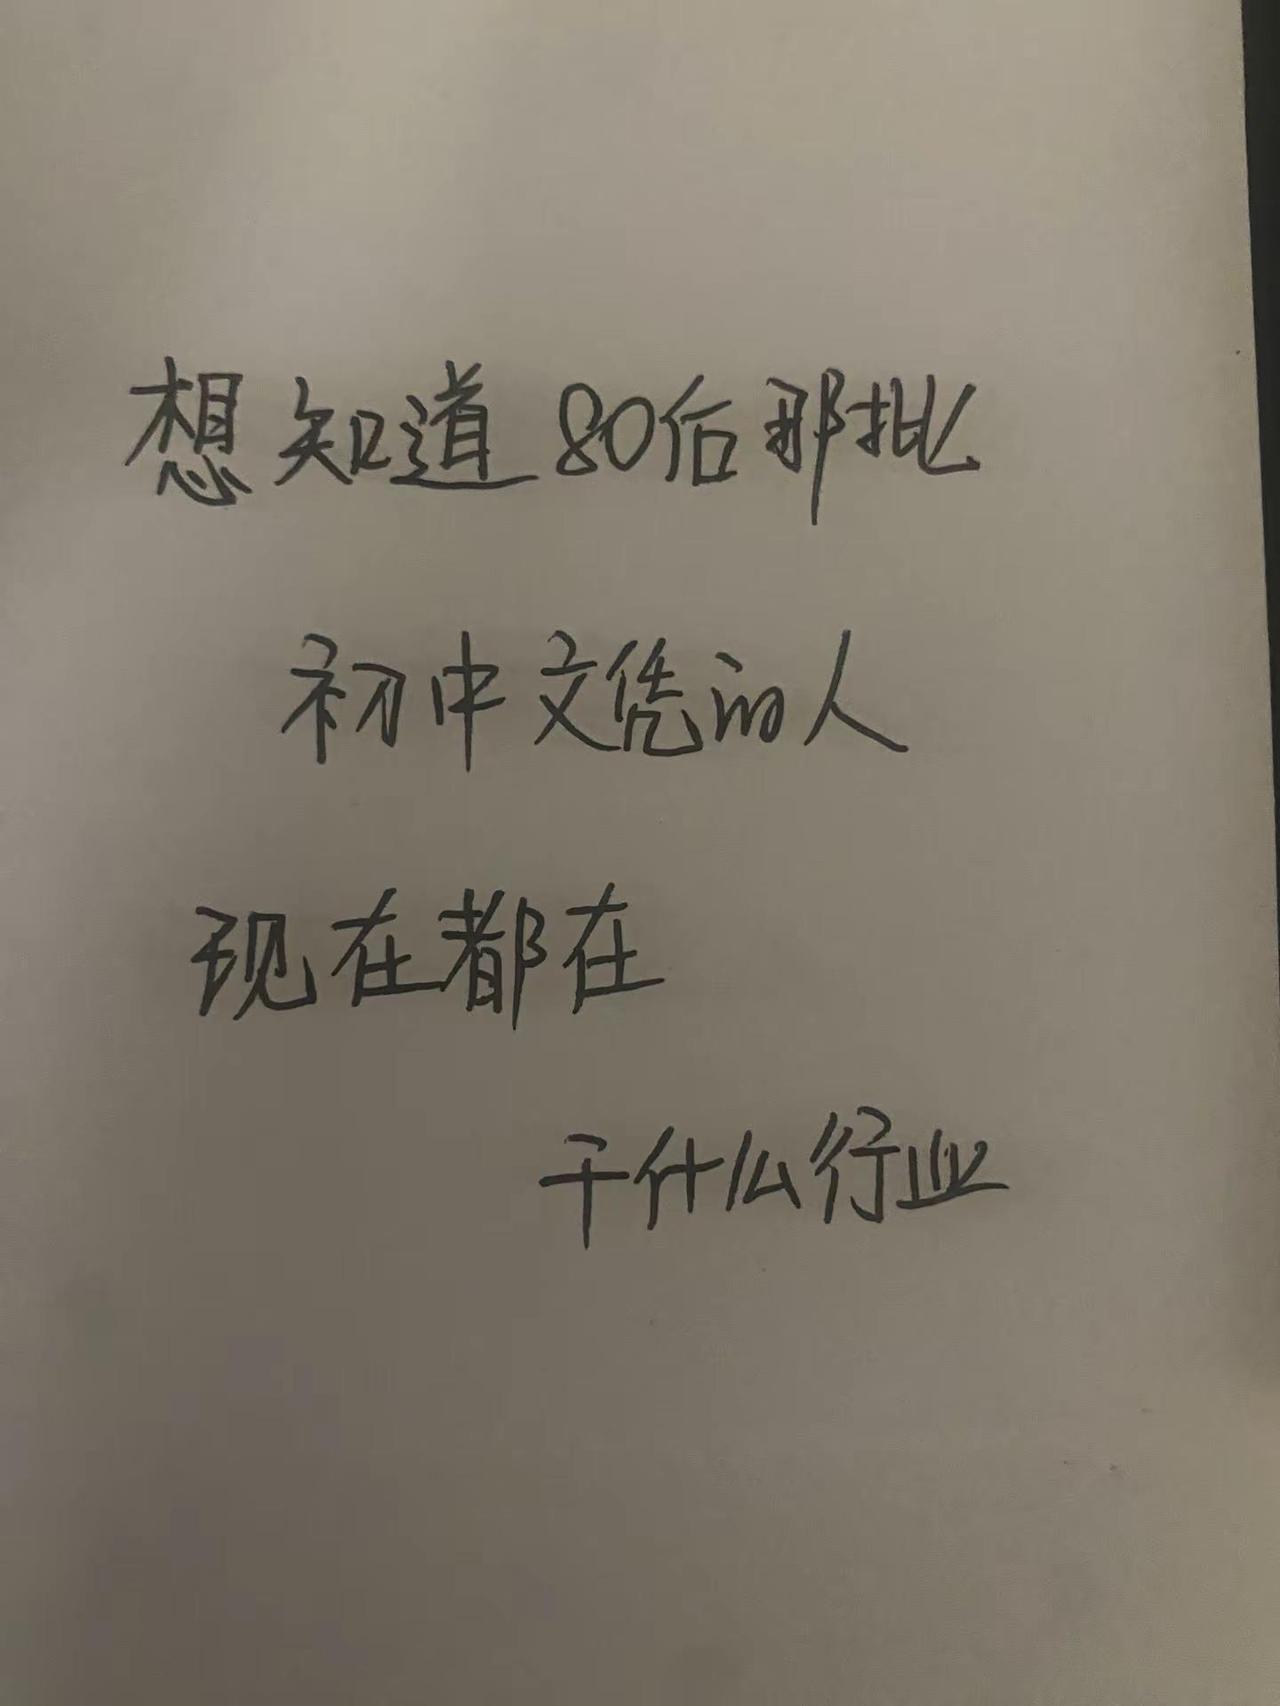 想知道80后那批
初中文凭的人
现在都在
干什么行业